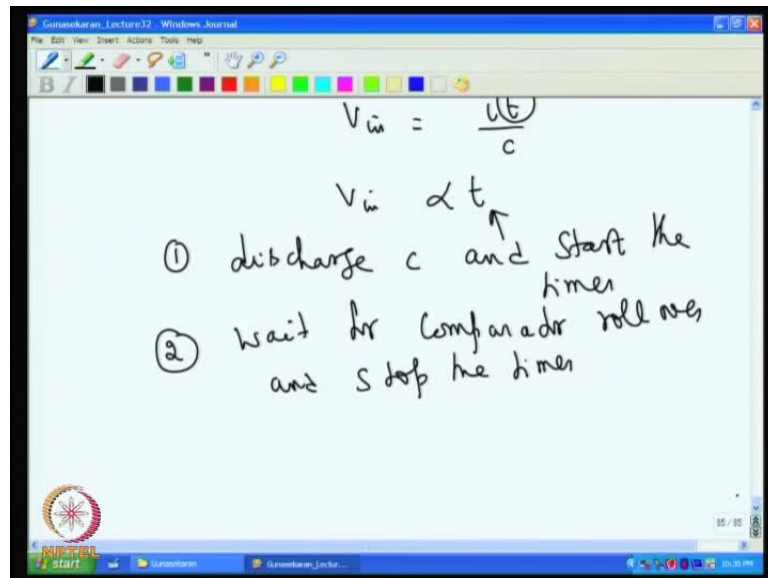 Gunasekaran_Lecture32 - Windows Journal
File Edit View Insert Actions Tools Help
B I
Vin = i(t)
c
Vin α t
① discharge c and start the
timer
② wait for comparador roll over
and stop the timer
85 / 85
NPTEL
start Gunasekaran Gunasekaran_Lectur... 10:30 PM